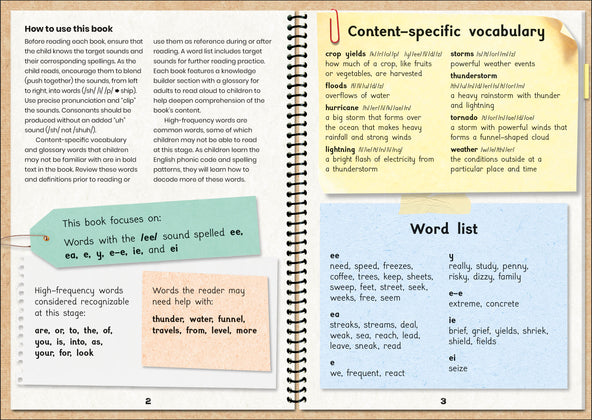 How to use this book
Before reading each book, ensure that
the child knows the target sounds and
their corresponding spellings. As the
child reads, encourage them to blend
(push together) the sounds, from left
to right, into words (/sh/ /i/ /p/ ● ship).
Use precise pronunciation and "clip"
the sounds. Consonants should be
produced without an added "uh"
sound (/sh/ not /shuh/).
Content-specific vocabulary
and glossary words that children
may not be familiar with are in bold
text in the book. Review these words
and definitions prior to reading or
use them as reference during or after
reading. A word list includes target
sounds for further reading practice.
Each book features a knowledge
builder section with a glossary for
adults to read aloud to children to
help deepen comprehension of the
book's content.
High-frequency words are
common words, some of which
children may not be able to read
at this stage. As children learn the
English phonic code and spelling
patterns, they will learn how to
decode more of these words.
This book focuses on:
Words with the /ee/ sound spelled ee,
ea, e, y, e-e, ie, and ei
High-frequency words
considered recognizable
at this stage:
are, or, to, the, of,
you, is, into, as,
your, for, look
Words the reader may
need help with:
thunder, water, funnel,
travels, from, level, more
2
Content-specific vocabulary
crop yields
how much of a crop, like fruits
or vegetables, are harvested
floods
overflows of water
hurricane
a big storm that forms over
the ocean that makes heavy
rainfall and strong winds
lightning
a bright flash of electricity from
a thunderstorm
storms
powerful weather events
thunderstorm
a heavy rainstorm with thunder
and lightning
tornado
a storm with powerful winds that
forms a funnel-shaped cloud
weather
the conditions outside at a
particular place and time
Word list
ee
need, speed, freezes,
coffee, trees, keep, sheets,
sweep, feet, street, seek,
weeks, free, seem
ea
streaks, streams, deal,
weak, sea, reach, lead,
leave, sneak, read
e
we, frequent, react
y
really, study, penny,
risky, dizzy, family
e-e
extreme, concrete
ie
brief, grief, yields, shriek,
shield, fields
ei
seize
3